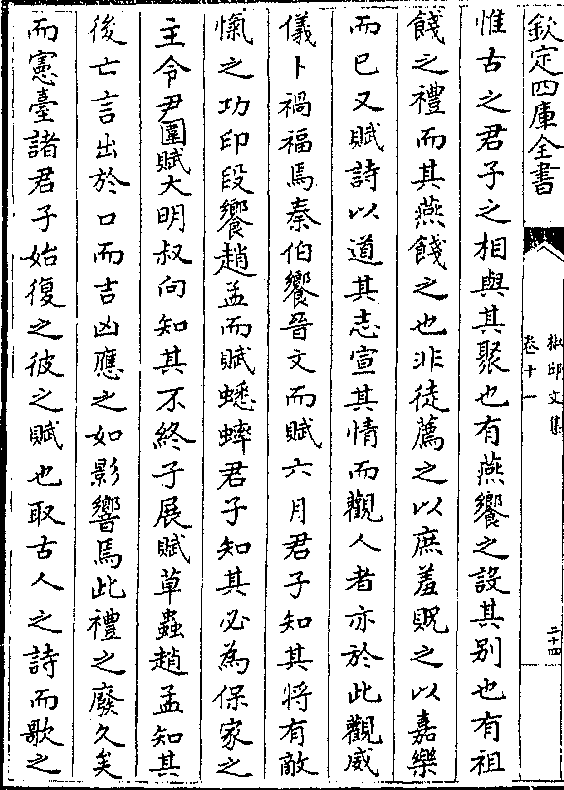 欽定四庫全書
椒邱文集
卷十一
二十四
惟古之君子之相與其聚也有燕饗之設其别也有祖
餞之禮而其燕餞之也非徒薦之以庶羞貺之以嘉樂
而已又賦詩以道其志宣其情而觀人者亦於此觀威
儀卜禍福焉秦伯饗晉文而賦六月君子知其將有敵
愾之功印段饗趙孟而賦蟋蟀君子知其必為保家之
主令尹圍賦大明叔向知其不終子展賦草蟲趙孟知其
後亡言出於口而吉凶應之如影響焉此禮之廢久矣
而憲臺諸君子始復之彼之賦也取古人之詩而歌之